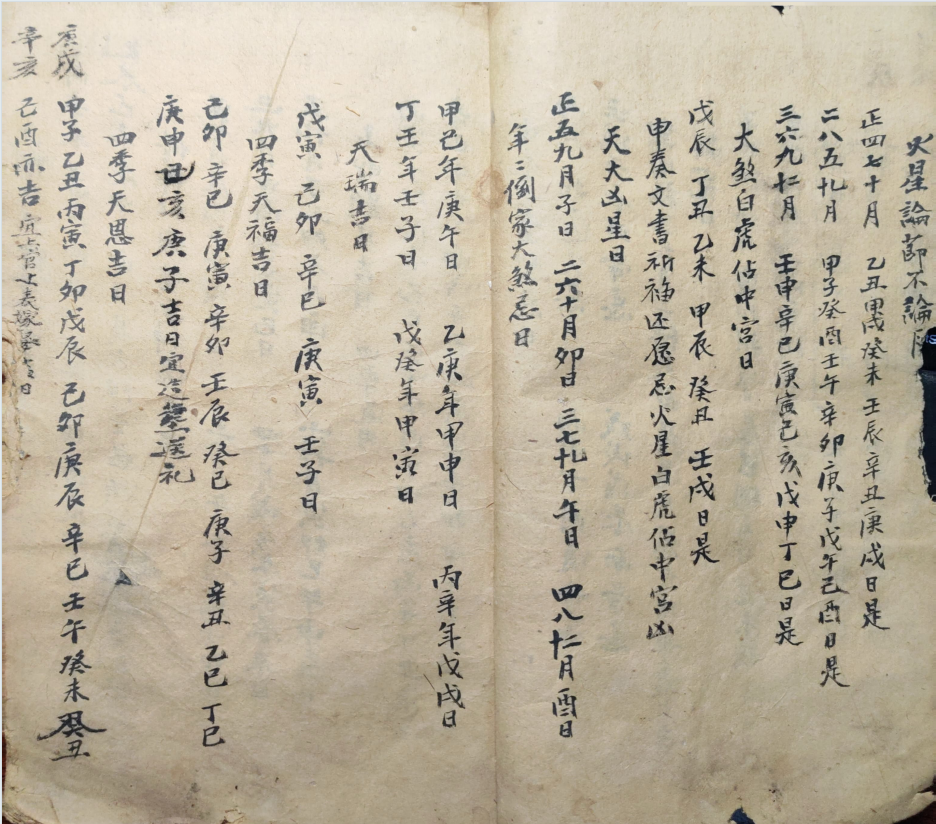 火星論節不論月
正四七十月 乙丑甲戌癸未 壬辰辛丑庚戌日是
二八五九月 甲子癸酉壬午辛卯庚子戊午己酉日是
三六九十二月 壬申辛巳庚寅己亥戊申丁巳日是
大煞白虎佔中宮日
戊辰 丁丑 乙未 甲辰 癸丑 壬戌日是
申奏文書祈福还愿忌火星白虎佔中宮凶
天大凶星日
正五九月子日 二六十月卯日 三七九月午日 四八十二月酉日
年二倒家大煞忌日
甲己年庚午日 乙庚年甲申日 丙辛年戊戌日
丁壬年壬子日 戊癸年甲寅日
天瑞吉日
戊寅 己卯 辛巳 庚寅 壬子日
四季天福吉日
己卯 辛巳 庚寅 辛卯 壬辰 癸巳 庚子 辛丑 乙巳 丁巳
庚申 己亥 庚子吉日宜造葬送礼
四季天恩吉日
甲子乙丑丙寅丁卯戊辰 己卯庚辰 辛巳 壬午 癸未 癸丑
庚戌
辛亥 己酉亦吉 宜上官上表嫁